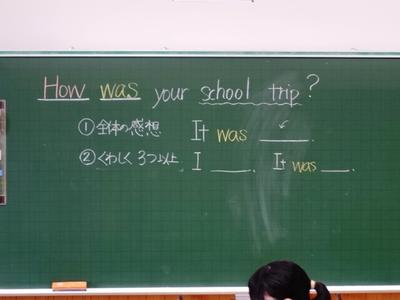 How was your school trip?
①全体の感想 It was ______.
②くわしく3つ以上 I ______. It was ____.